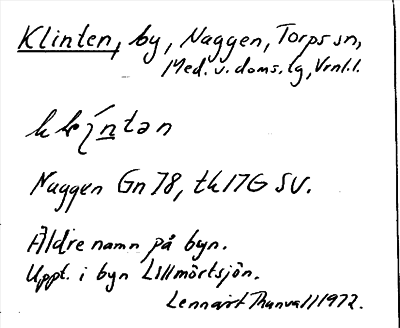 Klinten, by, Naggen, Torps sn,
Med. v. doms. lg, Vrnl. l.
Naggen Gn 78, tk 17G SV.
Äldre namn på byn.
Uppt. i byn Lillmörtsjön.
Lennart Thunvall 1972.